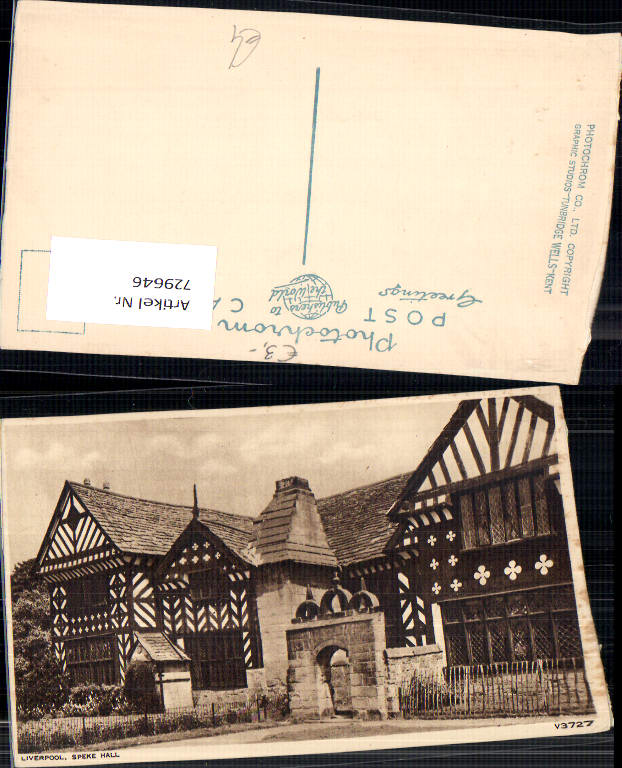 €4
PHOTOCHROM CO., LTD. COPYRIGHT
GRAPHIC STUDIOS-TUNBRIDGE WELLS-KENT
Greetings
POST CA
Photochrom
Publishers to
the World
Artikel Nr.
729646
€3,-
LIVERPOOL, SPEKE HALL
V3727